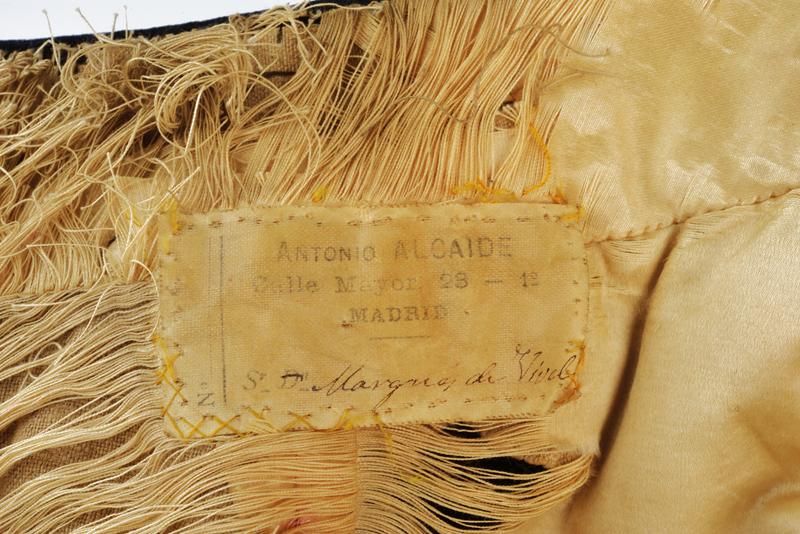 ANTONIO ALCAIDE
Calle Mayor, 23 — 1º
MADRID
Nº
Sr. Dn. Marques de Vivel